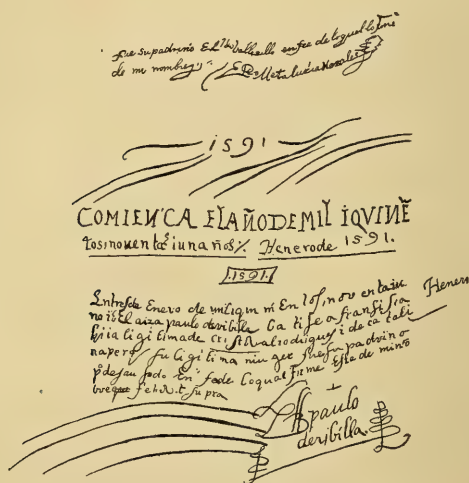 fue su padrino El Vallezillo en fee de lo qual lo firmé
de mi nombre
1591
COMIENCA ELAÑODEMIL IQVINĒ
tosinouenta iunaños/. Henerode 1591.
1591
En tresde Enero de miliquini En tos, inou entaiu Henero
no io El aiza paulo deribilla Batise a fransisca
hija ligitimade cristoval rodrigues i de catali
naperes su ligitima muger fue su padrino
En fede loqual firme Este de mi nõ
bre que fecho ut supra
paulo
deribilla